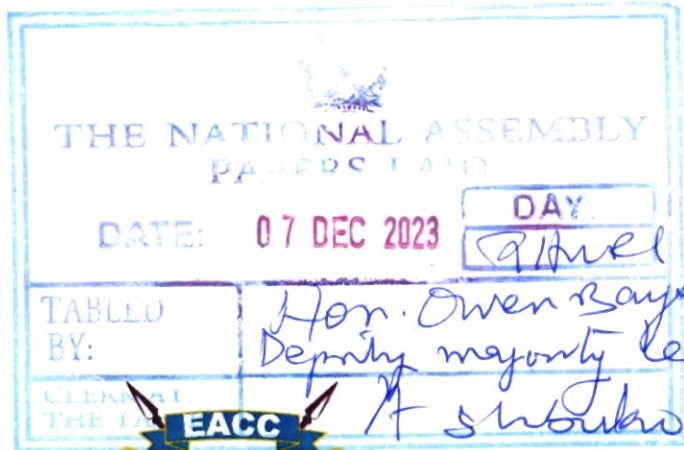 THE NATIONAL ASSEMBLY
PAPERS LAID
DATE: 07 DEC 2023 DAY:
TABLED Hon. Owen Baya
BY: Deputy majority
CLERK AT
THE
EACC